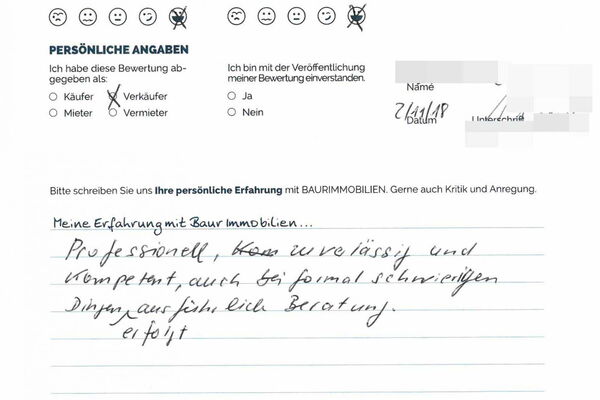 PERSÖNLICHE ANGABEN
Ich habe diese Bewertung ab-
gegeben als:
Käufer Verkäufer
Mieter Vermieter
Ich bin mit der Veröffentlichung
meiner Bewertung einverstanden.
Ja
Nein
Name
2/11/18
Datum Unterschrift
Bitte schreiben Sie uns Ihre persönliche Erfahrung mit BAURIMMOBILIEN. Gerne auch Kritik und Anregung.
Meine Erfahrung mit Baur Immobilien...
Professionell, Kom zuverlässig und
Kompetent, auch bei formal schwierigen
Dingen ausführlich Beratung.
erfolgt